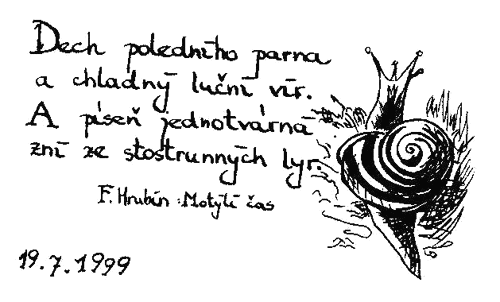 Dech poledního parna
a chladný luční vír.
A píseň jednotvárná
zní ze stostrunných lyr.
F. Hrubín : Motýlí čas
19.7.1999